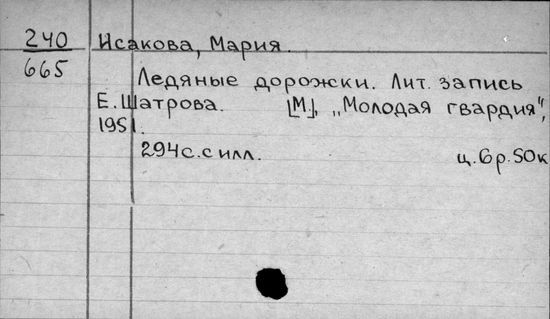 240 Исакова, Мария.
665
Ледяные дорожки. Лит. запись
Е. Шатрова. [М], „Молодая гвардия",
1951.
294с. с илл. ц. 6р. 50к